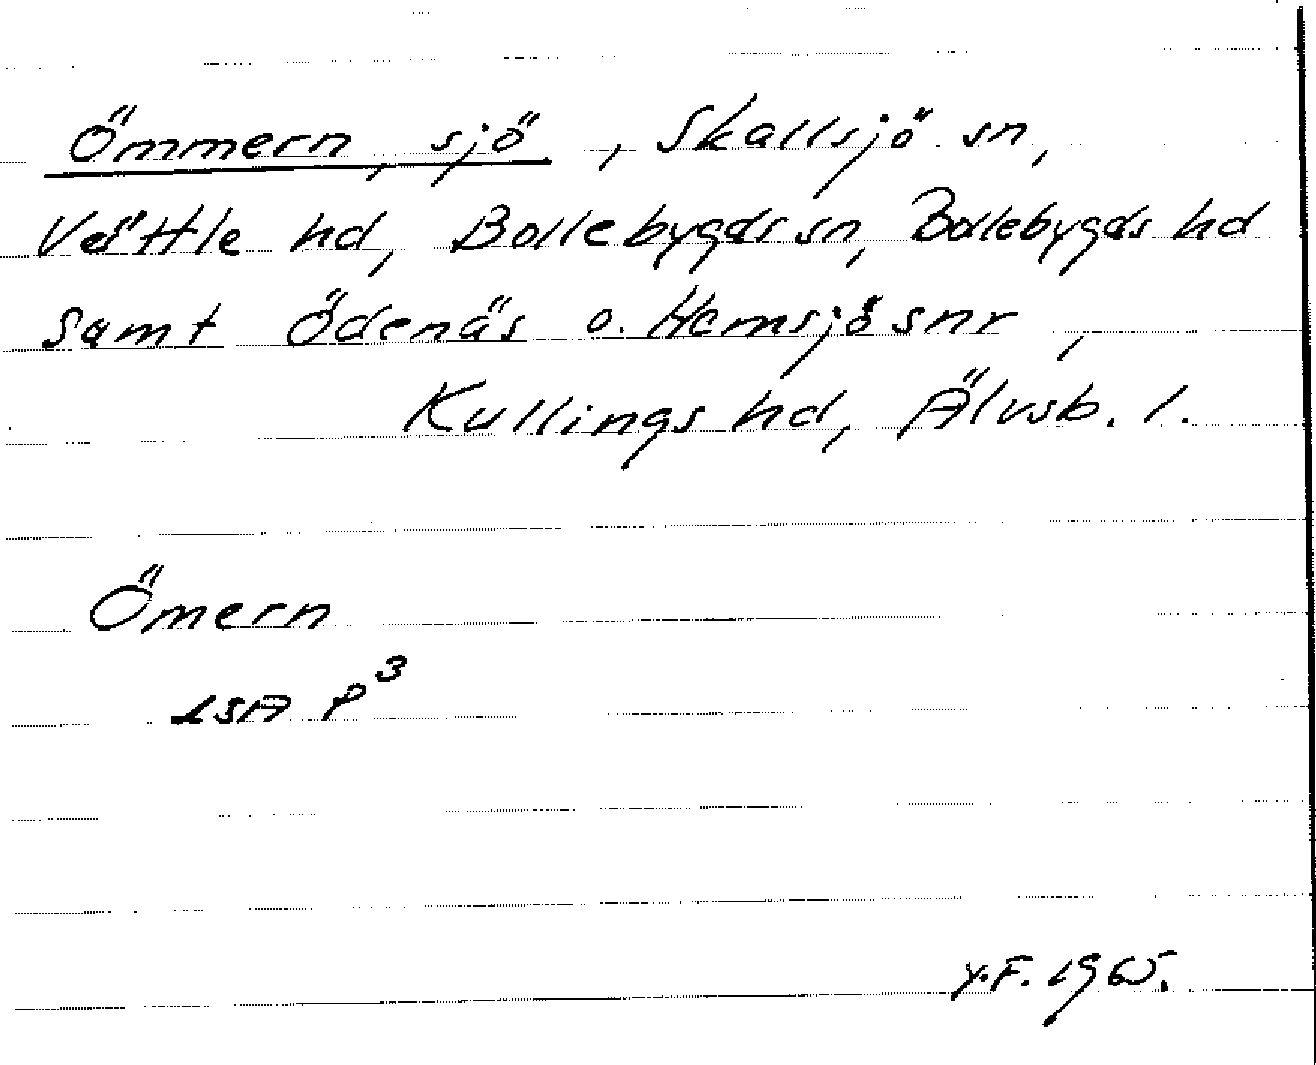 Ömmern, sjö, Skallsjö sn,
Vättle hd, Bollebygds sn, Bollebygds hd
samt Ödenäs o. Hemsjö snr,
Kullings hd, Älvsb. l.
Ömern
LSA P³
Y.F. 1965.